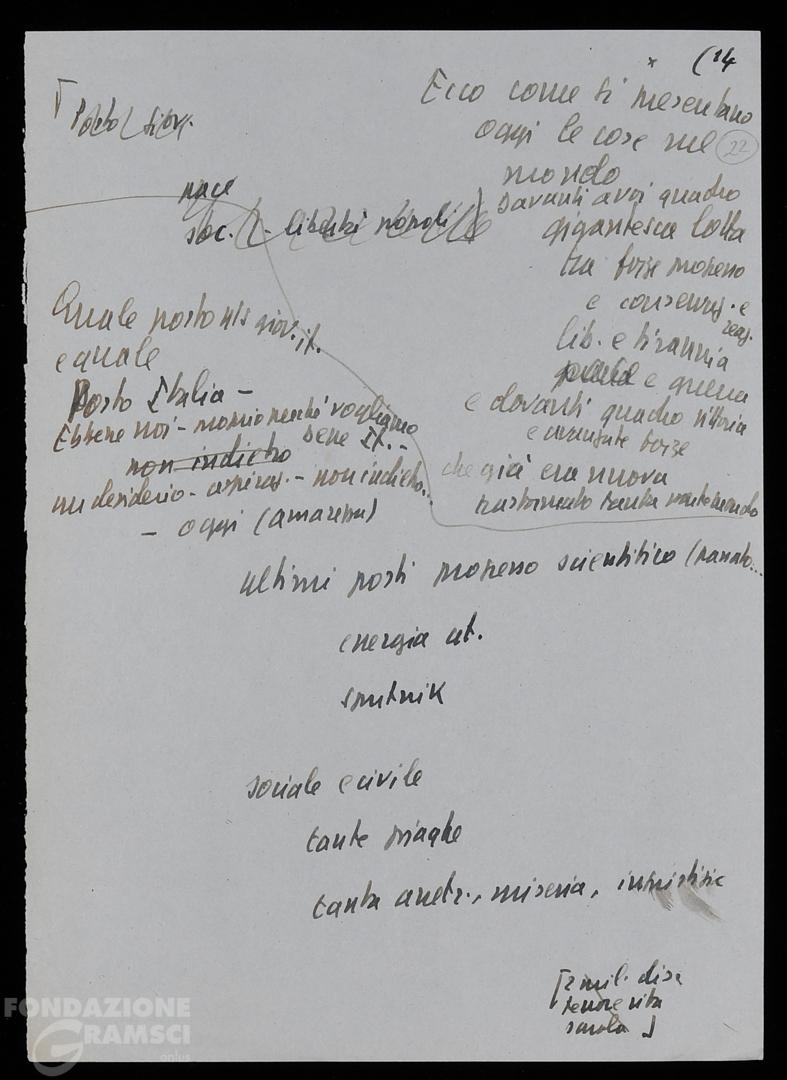 (14
Ecco come si presentano
oggi le cose nel
22
mondo
davanti a voi quadro
gigantesca lotta
tra forze progresso
e conservaz. e
reaz.
lib. e tirannia
pace e guerra
e davanti quadro vittoria
e avanzate forze
che già era nuova
trasformato tanta parte mondo
pace
soc. ( - libertà popoli )
Quale posto n/s giov. it.
e quale
Posto Italia -
Ebbene noi - proprio perché vogliamo
bene It. -
non indietro
un desiderio - aspiraz. - non indietro...
- oggi (amarezza)
ultimi posti progresso scientifico (passato...
energia at.
sputnik
sociale e civile
tante piaghe
tanta arretr., miseria, ingiustizie
[2 mil. dis.
tenore vita
scuola ]
FONDAZIONE
GRAMSCI
onlus